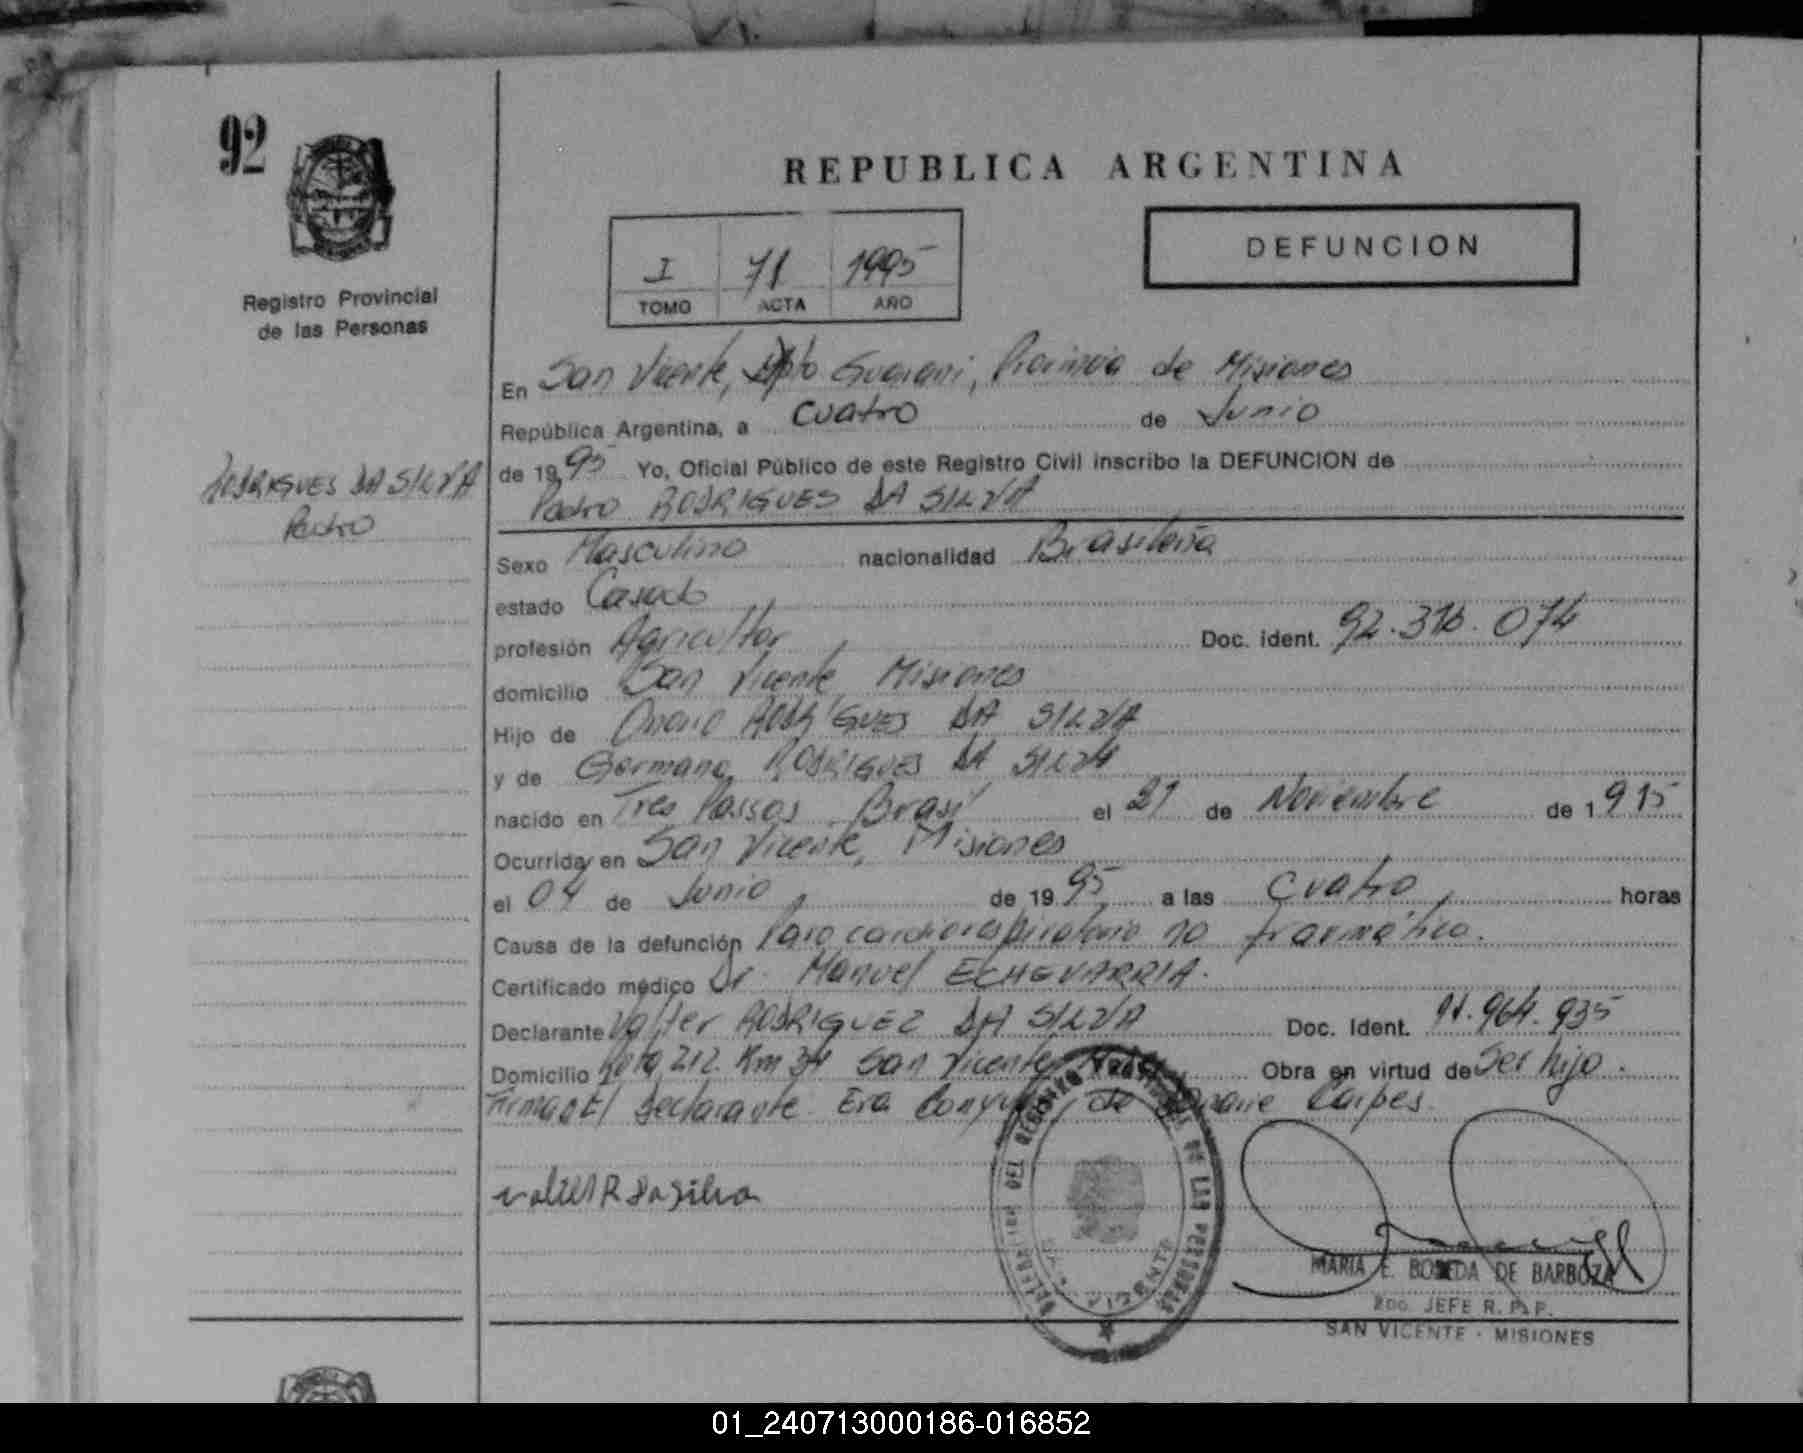 92
REPUBLICA ARGENTINA
DEFUNCION
I 71 1995
TOMO ACTA AÑO
Registro Provincial
de las Personas
En San Vicente, Dpto Guarani, Provincia de Misiones
República Argentina, a Cuatro de Junio
de 1995 Yo, Oficial Público de este Registro Civil inscribo la DEFUNCION de
Pedro RODRIGUES DA SILVA
RODRIGUES DA SILVA
Pedro
Sexo Masculino nacionalidad Brasileña
estado Casado
profesión Agricultor Doc. ident. 92.316.074
domicilio San Vicente, Misiones
Hijo de RODRIGUES DA SILVA
y de Germana RODRIGUES DA SILVA
nacido en Tres Passos Brasil el 21 de Noviembre de 1915
Ocurrida en San Vicente, Misiones
el 04 de Junio de 1995 a las Cuatro horas
Causa de la defunción Paro cardiorespiratorio no traumático.
Certificado médico Dr. Manuel ECHEVARRIA.
Declarante Valter RODRIGUEZ DA SILVA Doc. Ident. 964.935
Domicilio Ruta 212. Km 34 San Vicente Obra en virtud de Ser hijo.
Firma El Declarante. Era Conyuge de Carpes.
Valter R da Silva
DELEGACION DEL REGISTRO PROVINCIAL DE LAS PERSONAS
SAN VICENTE
MARIA E. DE BARBOZA
2do. JEFE R. P. P.
SAN VICENTE - MISIONES
01_240713000186-016852